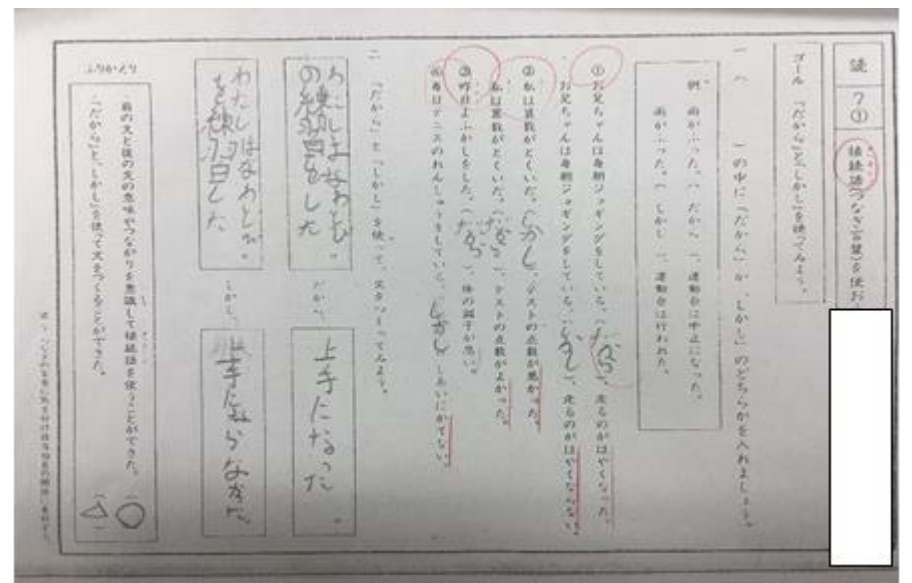 読
7①
接続語(つなぎ言葉)を使お
ゴール 「だから」と、「しかし」を使ってみよう。
一 ( )の中に「だから」か、「しかし」のどちらかを入れましょう。
例 雨がふった。( だから )、運動会は中止になった。
雨がふった。( しかし )、運動会は行われた。
① お兄ちゃんは毎朝ジョギングをしている。(だから)、走るのがはやくなった。
お兄ちゃんは毎朝ジョギングをしている。(しかし)、走るのがはやくならない。
② 私は算数がとくいだ。(しかし)、テストの点数が悪かった。
私は算数がとくいだ。(だから)、テストの点数がよかった。
③ 昨日よふかしをした。(だから)、体の調子が悪い。
④ 毎日テニスのれんしゅうをしている。(しかし)しあいにかてない。
二 「だから」と「しかし」を使って、文をつくってみよう。
わたしはなわとび。
の練習をした
だから、
上手になった。
わたしはなわとび。
を練習した
しかし、
上手にならなかた。
ふりかえり
前の文と後の文の意味やつながりを意識して接続語を使うことができた。(○)
「だから」と、「しかし」を使って文をつくることができた。(△)